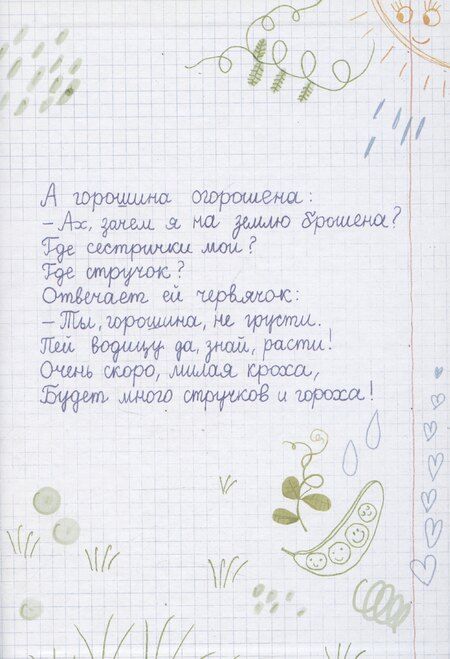 А горошина огорошена:
– Ах, зачем я на землю брошена?
Где сестрички мои?
Где стручок?
Отвечает ей червячок:
– Ты, горошина, не грусти.
Пей водицу да, знай, расти!
Очень скоро, милая кроха,
Будет много стручков и гороха!